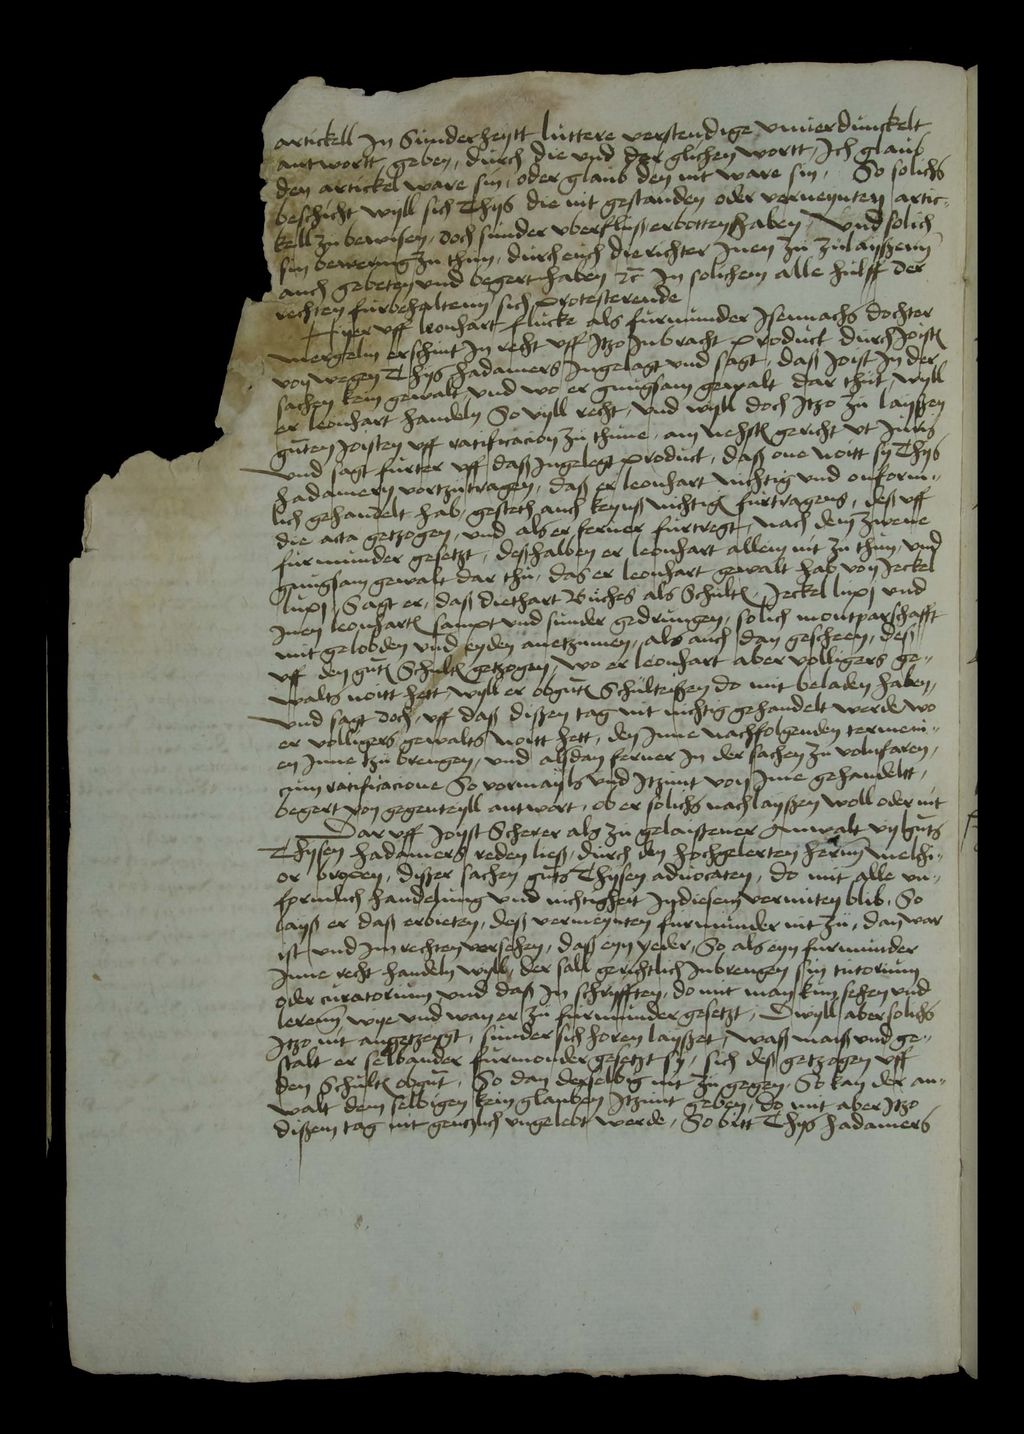 artickell In Sunderheytt luttere verstendige unverdunckelt
antwortt geben, durch die und der glichen wortt, Ich glaub
den artickel ware sin, oder glaub den nit ware sin, So solichs
beschicht wyll sich Thys die nit gestanden oder verneynten artic-
kell zu bewisen, doch sunder uberfluß erbotten haben, Und solich
sin bewerung zu thun, durch euch die richter Inen zu zulayßenn
auch gebeten und begert haben etc In solichem alle hulff der
rechten furbehaltenn sich protesterende
Hier uff leonhart flucke als furmunder Isennachs dochter
mergeln erschint In recht uff Itzo Inbracht product durch Joisten
von wegen Thys hadamers Ingelagt und sagt, daß Joist In der
sachen kein gewalt, und wo er gnugsam gewalt dar thut, wyll
er leonhart handeln So vyll recht, und wyll doch Itzo zu layßen
guten Joisten uff ratificacion zu thune, am nehsten gericht ut Juris
und sagt furter uff daß Ingelegt product, daß one noitt sy Thys
hadamern vortzutragen, daß er leonhart nichtig und onform-
lich gehandelt hab, gesteth auch keynß nichtigen furtragens, deß uff
die acta getzogen, und als er ferner furtregt, nach dem zwene
furmunder gesetzt, deßhalben er leonhart allein nit zu thun, und
gnugsam gewalt dar thu, das er leonhart gewalt hab von Jeckel
lupj, Sagt er, daß diethart Buches als Schulten Jeckel lupj und
Inen leonharten sampt und sunder gedrungen, solich montparschafft
mit gelobden und eyden anetzunemen, als auch dan gescheen, deß
uff den guten Schulten getzogen, wo er leonhart aber volligers ge-
walts noitt hett wyll er obguten Schulteißen do mit beladen haben,
und sagt doch, uff daß dißen tag nit nichtig gehandelt werde wo
er volligers gewalts noitt hett, den Inne nachfolgenden termein-
en Inne zu brengen, und alsdan ferner In der sachen zu volnfaren,
cum ratificacione So vormayls und Itzunt von Ime gehandeltt,
begert von gegenteyll antwort, ob er solichs nachlayßen woll oder nit
Dar uff Joyst Scherer als zu gelaußener Anwalt vylguts
Thysen hadamers reden ließ, durch den hochgelerten herrnn Melchi-
or broxen, dißer sachen guts Thysen advocaten, do mit alle un-
formlich handelung und nichtigheit In diesem vermiten blib, So
layß er daß erbieten, deß vermeynten furmunder nit zu, dan war
ist und Im rechten versehen, daß eyn yeder, So als eyn furmunder
Inne recht handeln wyll, der sall gerichtlich Inbrengen sin tutorium
oder curatorium und daß In schryfften, do mit man kun sehen und
lerenn wye und wan er zu furmunder gesetzt, Dwyll aber solichs
Itzo nit angetzeygt, sunder sich horen layßet, waß maiß und ge-
stalt er selbander furmonder gesetzt sy, sich deß getzogen uff
den Schulten obgut, So dan derselbig nit zu gegen, So kan der an-
walt dem selbigen kein glauben Itzunt geben, do mit aber Itzo
dißem tag nit gentzlich ungelebt werde, So bitt Thys hadamers